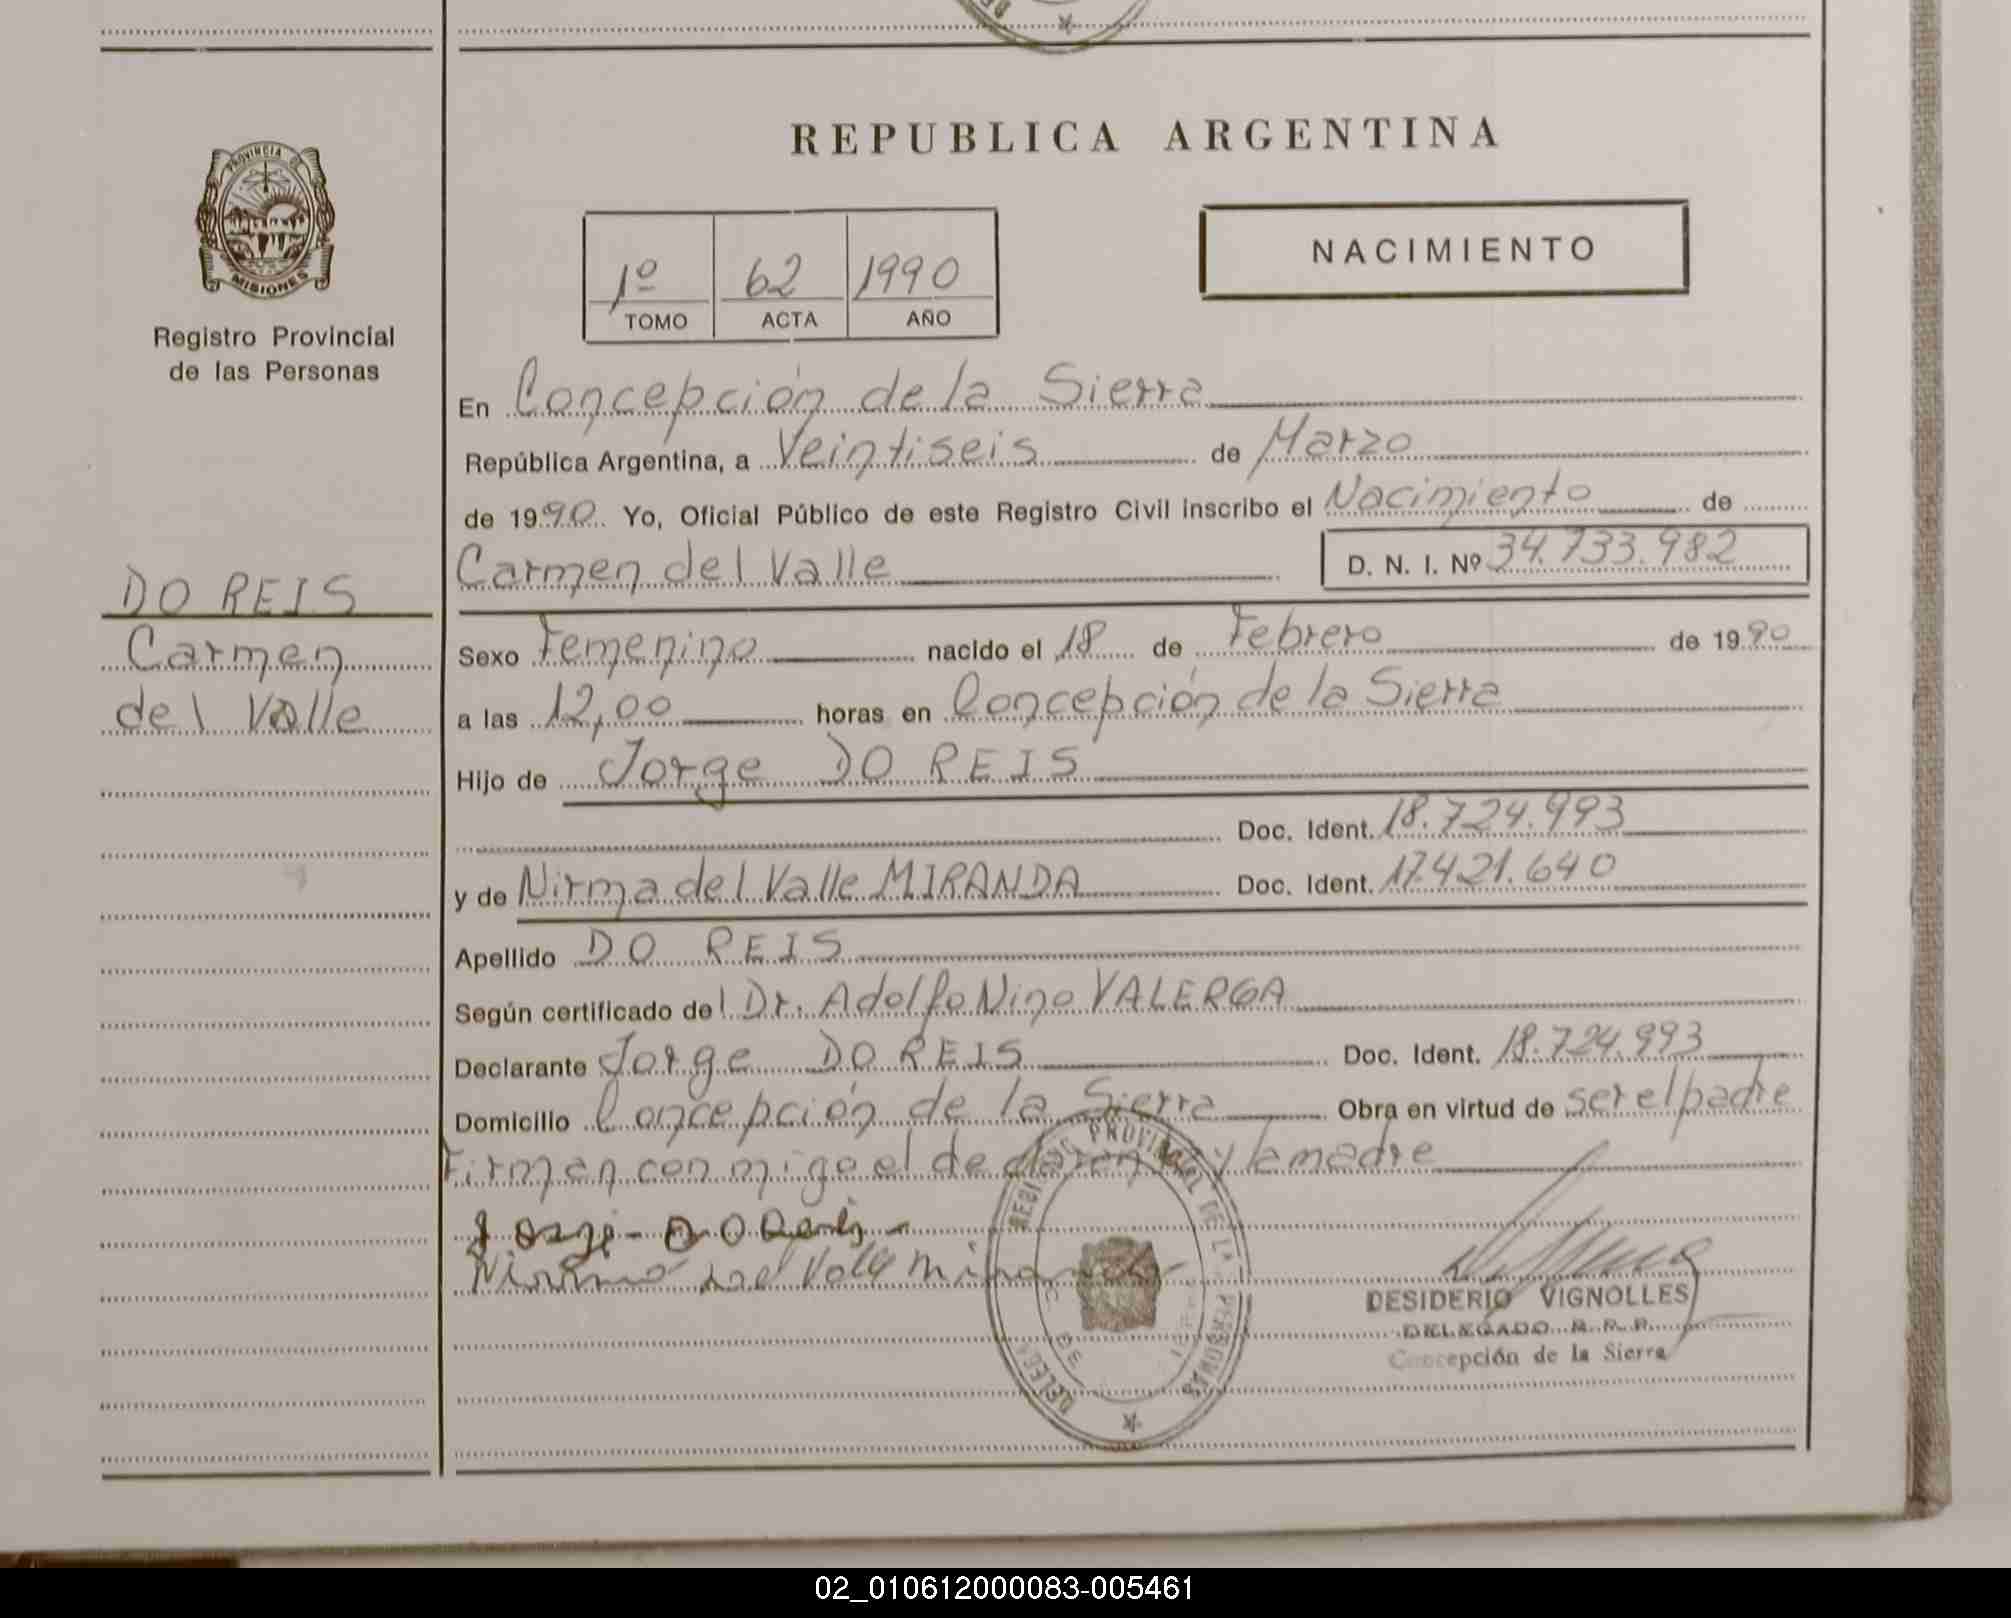 REPUBLICA ARGENTINA
PROVINCIA DE
MISIONES
Registro Provincial
de las Personas
1º 62 1990
TOMO ACTA AÑO
NACIMIENTO
En Concepción de la Sierra
República Argentina, a Veintiseis de Marzo
de 1990. Yo, Oficial Público de este Registro Civil inscribo el Nacimiento de
Carmen del Valle D. N. I. Nº 34.733.982
DO REIS
Carmen
del Valle
Sexo Femenino nacido el 18 de Febrero de 1990
a las 12,00 horas en Concepción de la Sierra
Hijo de Jorge DO REIS
Doc. Ident. 18.724.993
y de Nirma del Valle MIRANDA Doc. Ident. 17.421.640
Apellido DO REIS
Según certificado del Dr. Adolfo Nino VALERGA
Declarante Jorge DO REIS Doc. Ident. 18.724.993
Domicilio Concepción de la Sierra Obra en virtud de ser el padre
Firman con migo el declarante y la madre
Jorge - DO Reis -
Nirma del Valle Miranda
REGISTRO PROVINCIAL DE LAS PERSONAS
DESIDERIO VIGNOLLES
DELEGADO R. P. P.
Concepción de la Sierra
02_010612000083-005461